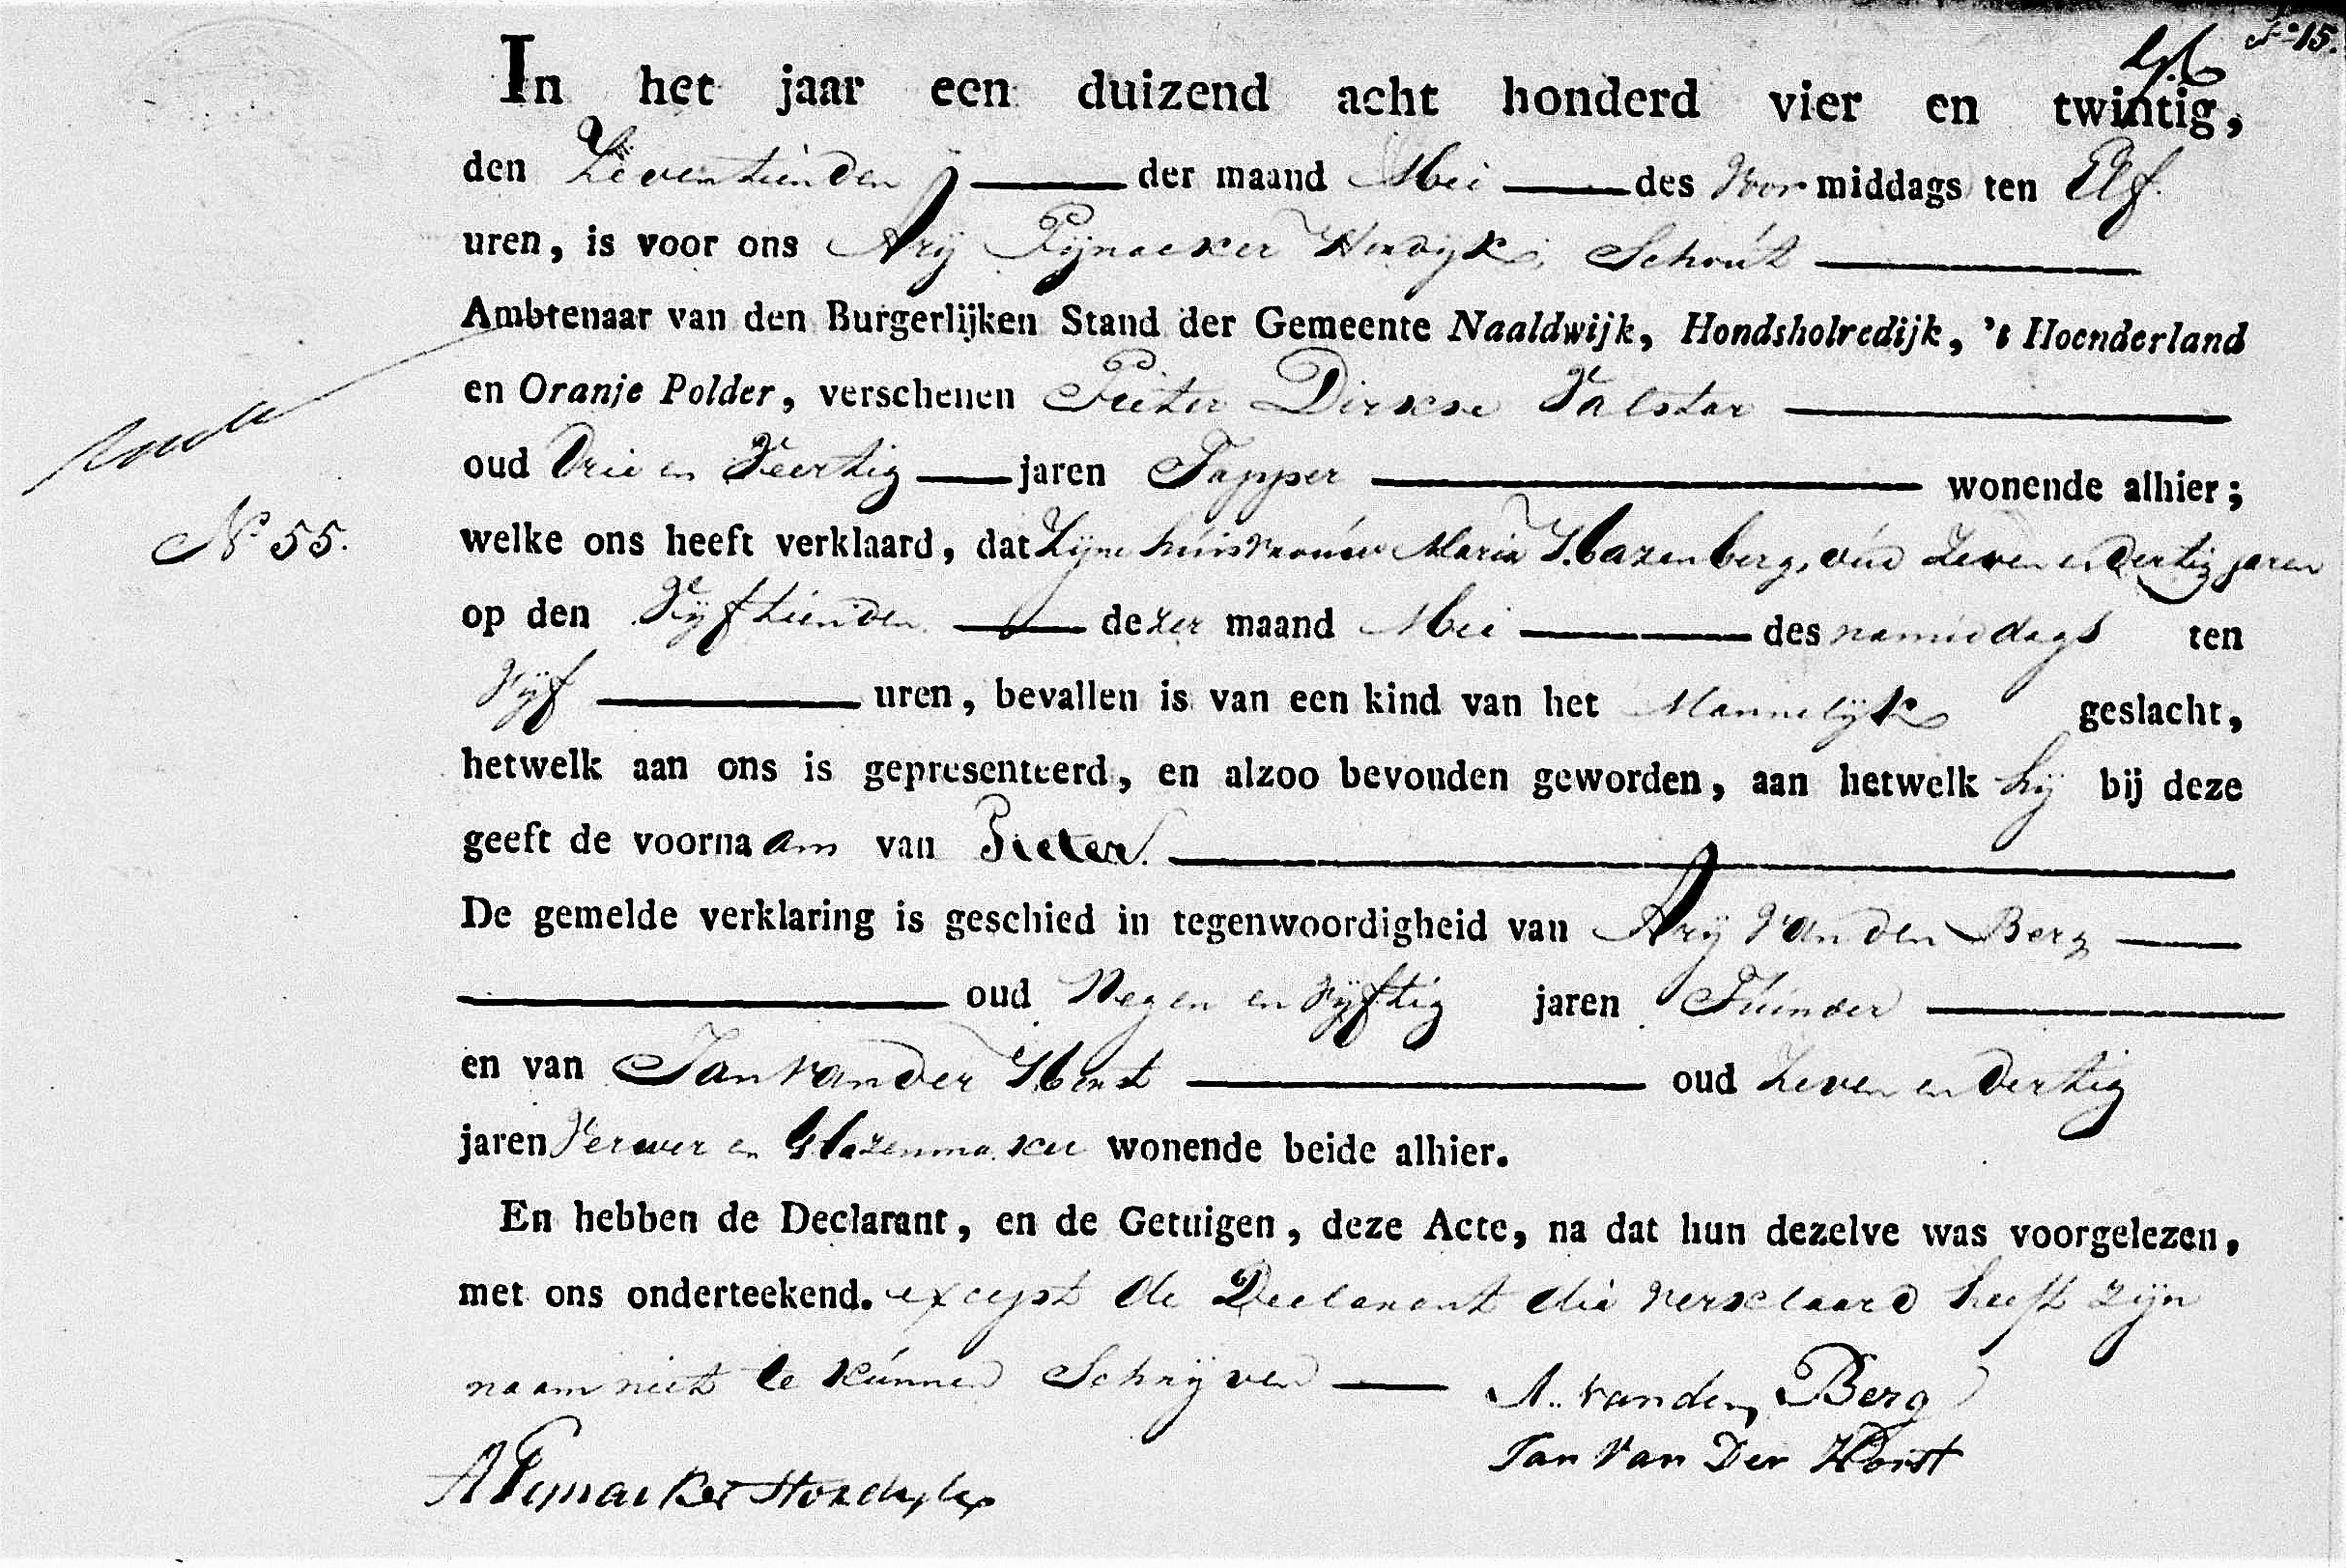 F° 15.
In het jaar een duizend acht honderd vier en twintig,
den Zeventienden der maand Mei des Voor middags ten Elf
uren, is voor ons Arÿ Pÿnacker Hordÿk, Schout
Ambtenaar van den Burgerlijken Stand der Gemeente Naaldwijk, Hondsholredijk, 't Hoenderland
en Oranje Polder, verschenen Pieter Dirkse Valstar
oud Drie en Veertig jaren Tapper wonende alhier;
N° 55.
welke ons heeft verklaard, dat Zÿne huisvrouw Maria Hazenberg, oud Zeven en Dertig jaren
op den Vÿftienden dezer maand Mei des namiddags ten
Vÿf uren, bevallen is van een kind van het Mannelÿk geslacht,
hetwelk aan ons is gepresenteerd, en alzoo bevonden geworden, aan hetwelk hÿ bij deze
geeft de voornaam van Pieter.
De gemelde verklaring is geschied in tegenwoordigheid van Arÿ van den Berg
oud Negen en Vÿftig jaren Tuinder
en van Jan van der Horst oud Zeven en Dertig
jaren Verwer en Glazenmaker wonende beide alhier.
En hebben de Declarant, en de Getuigen, deze Acte, na dat hun dezelve was voorgelezen,
met ons onderteekend. except de Declarant die verklaard heeft zÿn
naam niet te kunnen Schrÿven
A. van den Berg
Jan Van Der Horst
A Pÿnacker Hordÿk